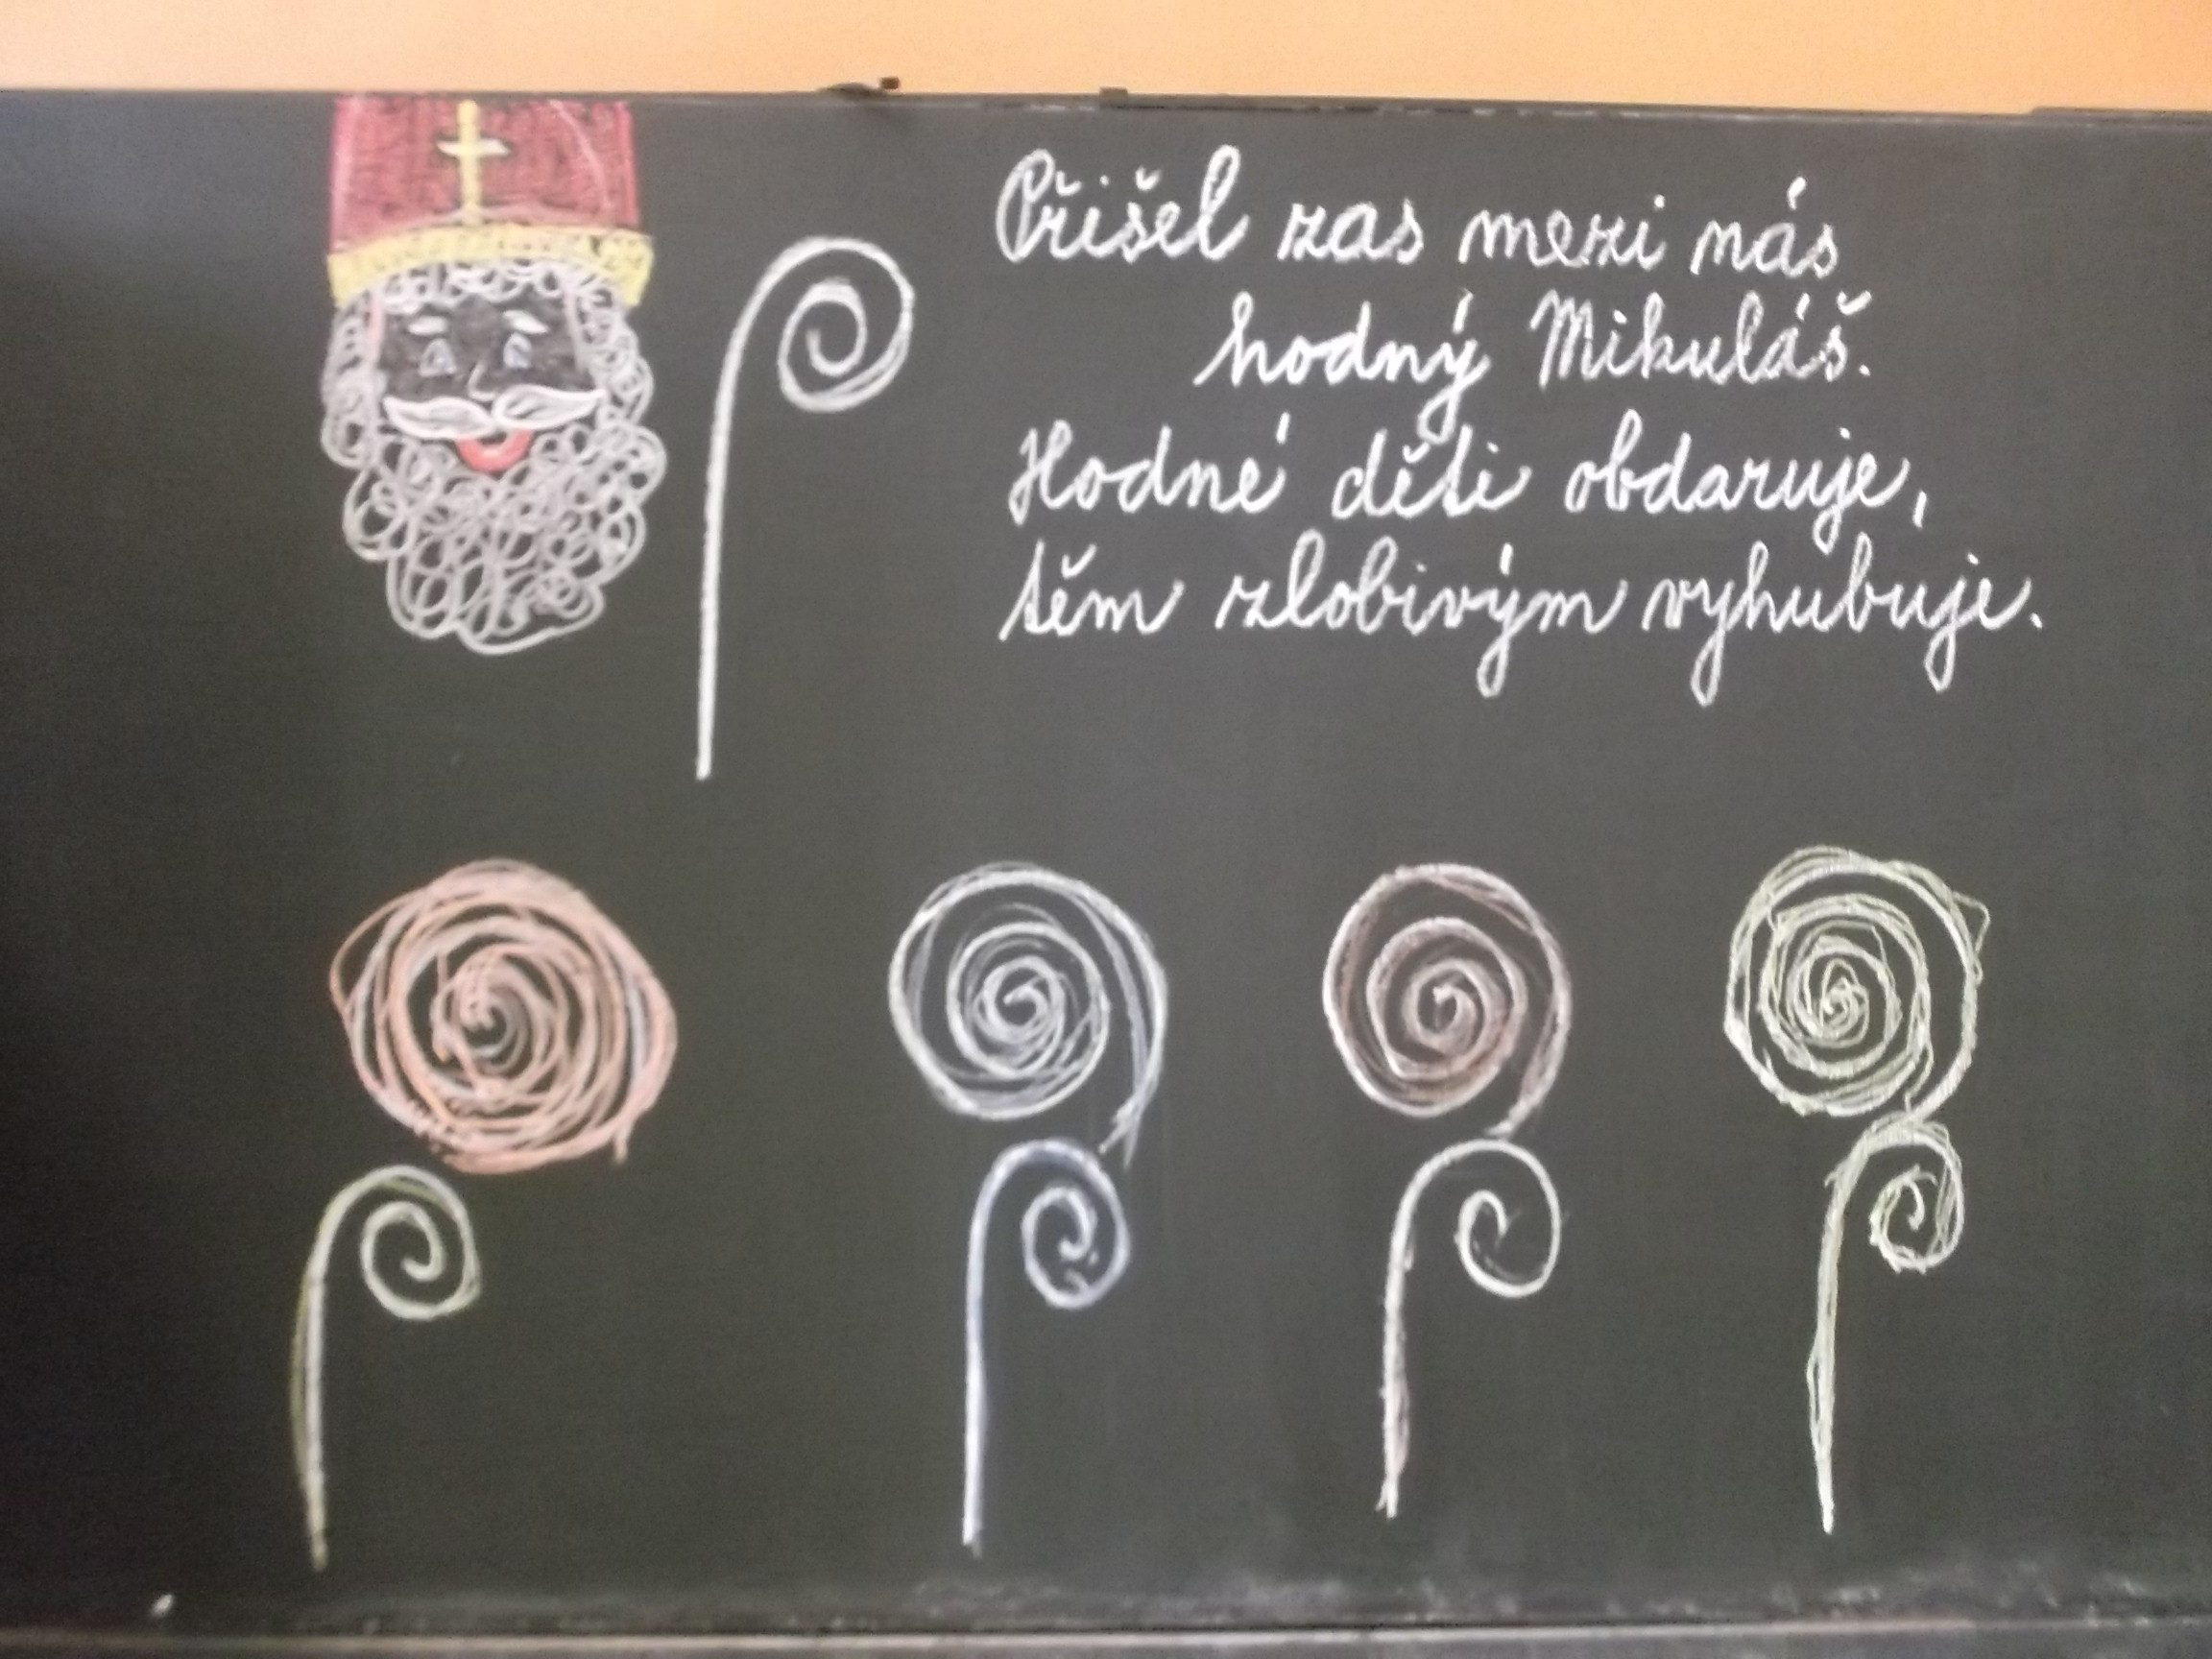 Přišel zas mezi nás
hodný Mikuláš.
Hodné děti obdaruje,
těm zlobivým vyhubuje.